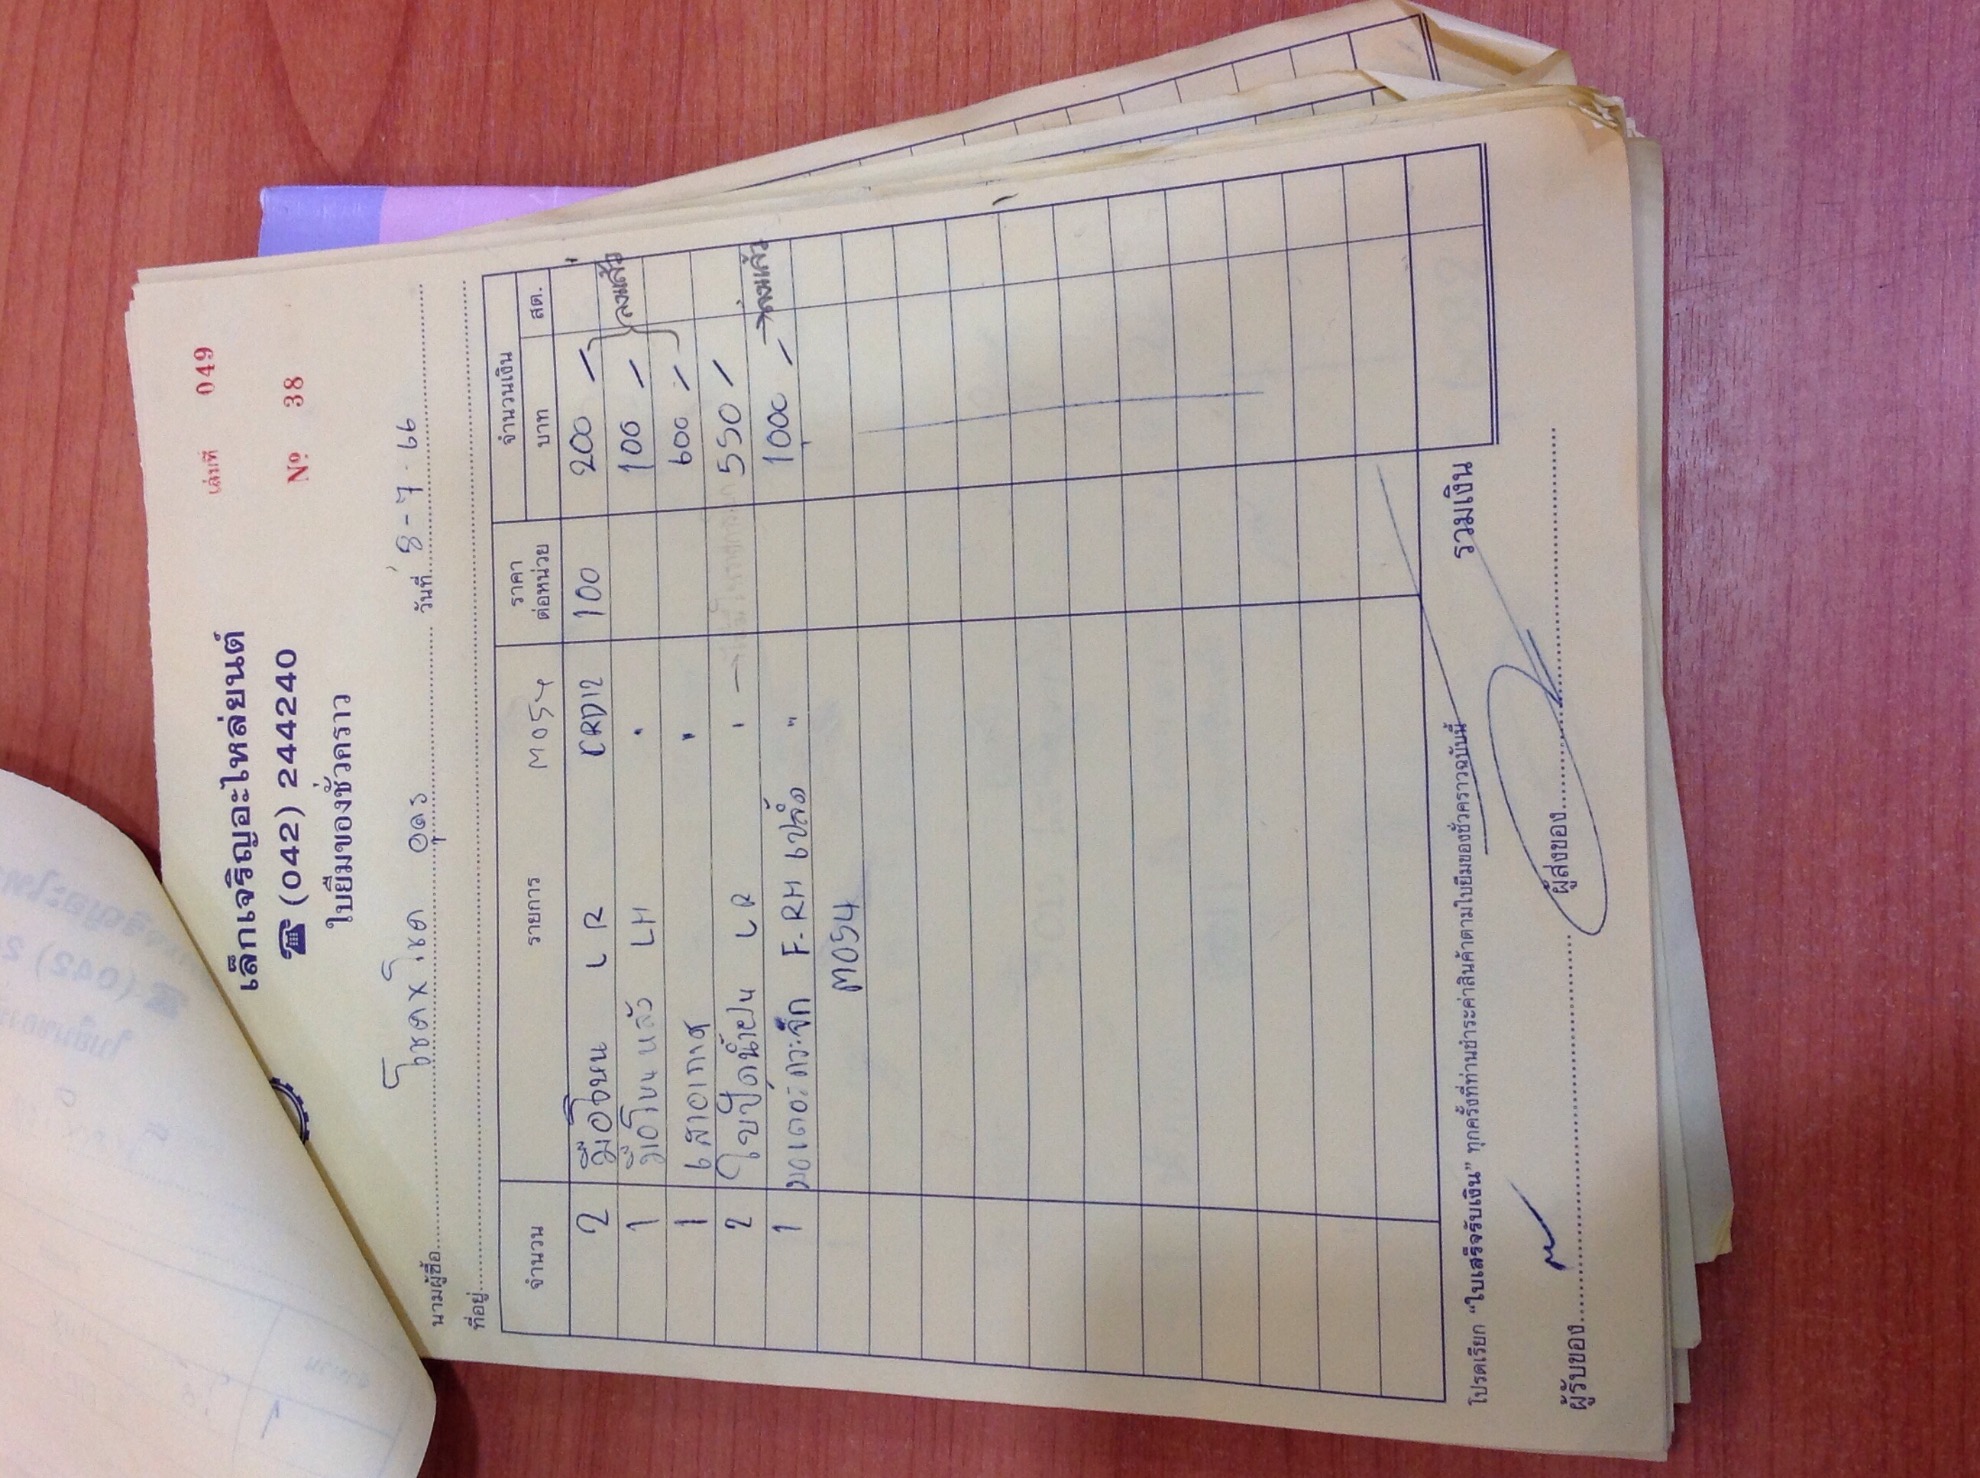 เล่มที่ 049
เล็กเจริญอะไหล่ยนต์
☎ (042) 244240
Nº 38
ใบยืมของชั่วคราว
นามผู้ซื้อ โชค x โชค อุดร วันที่ 8-7-66
ที่อยู่
จำนวน รายการ M054 ราคาต่อหน่วย จำนวนเงิน บาท สต.
2 มือโหน L R 100 200
1 มือโหนหลัง LH " 100
1 เสาอากาศ " 600
2 ใบปัดน้ำฝน L R " 550
1 มอเตอร์กระจก F.RH " 1000
M054
รวมเงิน
โปรดเรียก “ใบเสร็จรับเงิน” ทุกครั้งที่ท่านชำระค่าสินค้าตามใบยืมของชั่วคราวฉบับนี้
ผู้รับของ ผู้ส่งของ